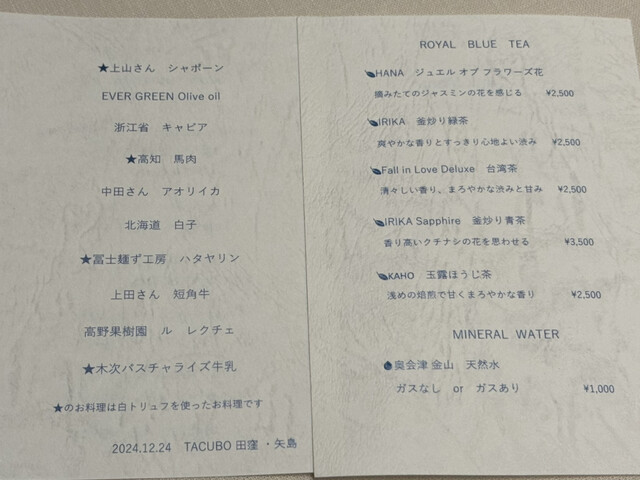 ★上山さん　シャポーン
EVER GREEN Olive oil
浙江省　キャビア
★高知　馬肉
中田さん　アオリイカ
北海道　白子
★冨士麺ず工房　ハタヤリン
上田さん　短角牛
高野果樹園　ル　レクチェ
★木次パスチャライズ牛乳
★のお料理は白トリュフを使ったお料理です
2024.12.24　TACUBO 田窪 ・矢島
ROYAL BLUE TEA
HANA　ジュエル オブ フラワーズ花
摘みたてのジャスミンの花を感じる　¥2,500
IRIKA　釜炒り緑茶
爽やかな香りとすっきり心地よい渋み　¥2,500
Fall in Love Deluxe　台湾茶
清々しい香り、まろやかな渋みと甘み　¥2,500
IRIKA Sapphire　釜炒り青茶
香り高いクチナシの花を思わせる　¥3,500
KAHO　玉露ほうじ茶
浅めの焙煎で甘くまろやかな香り　¥2,500
MINERAL WATER
奥会津 金山　天然水
ガスなし　or　ガスあり　¥1,000